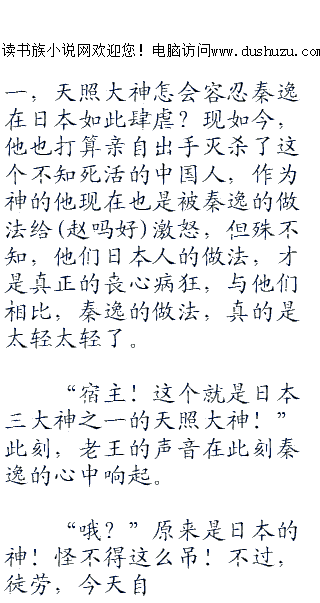 读书族小说网欢迎您！电脑访问www.dushuzu.com
一，天照大神怎会容忍秦逸
在日本如此肆虐？现如今，
他也打算亲自出手灭杀了这
个不知死活的中国人，作为
神的他现在也是被秦逸的做
法给(赵吗好)激怒，但殊不
知，他们日本人的做法，才
是真正的丧心病狂，与他们
相比，秦逸的做法，真的是
太轻太轻了。
“宿主！这个就是日本
三大神之一的天照大神！”
此刻，老王的声音在此刻秦
逸的心中响起。
“哦？”原来是日本的
神！怪不得这么吊！不过，
徒劳，今天自